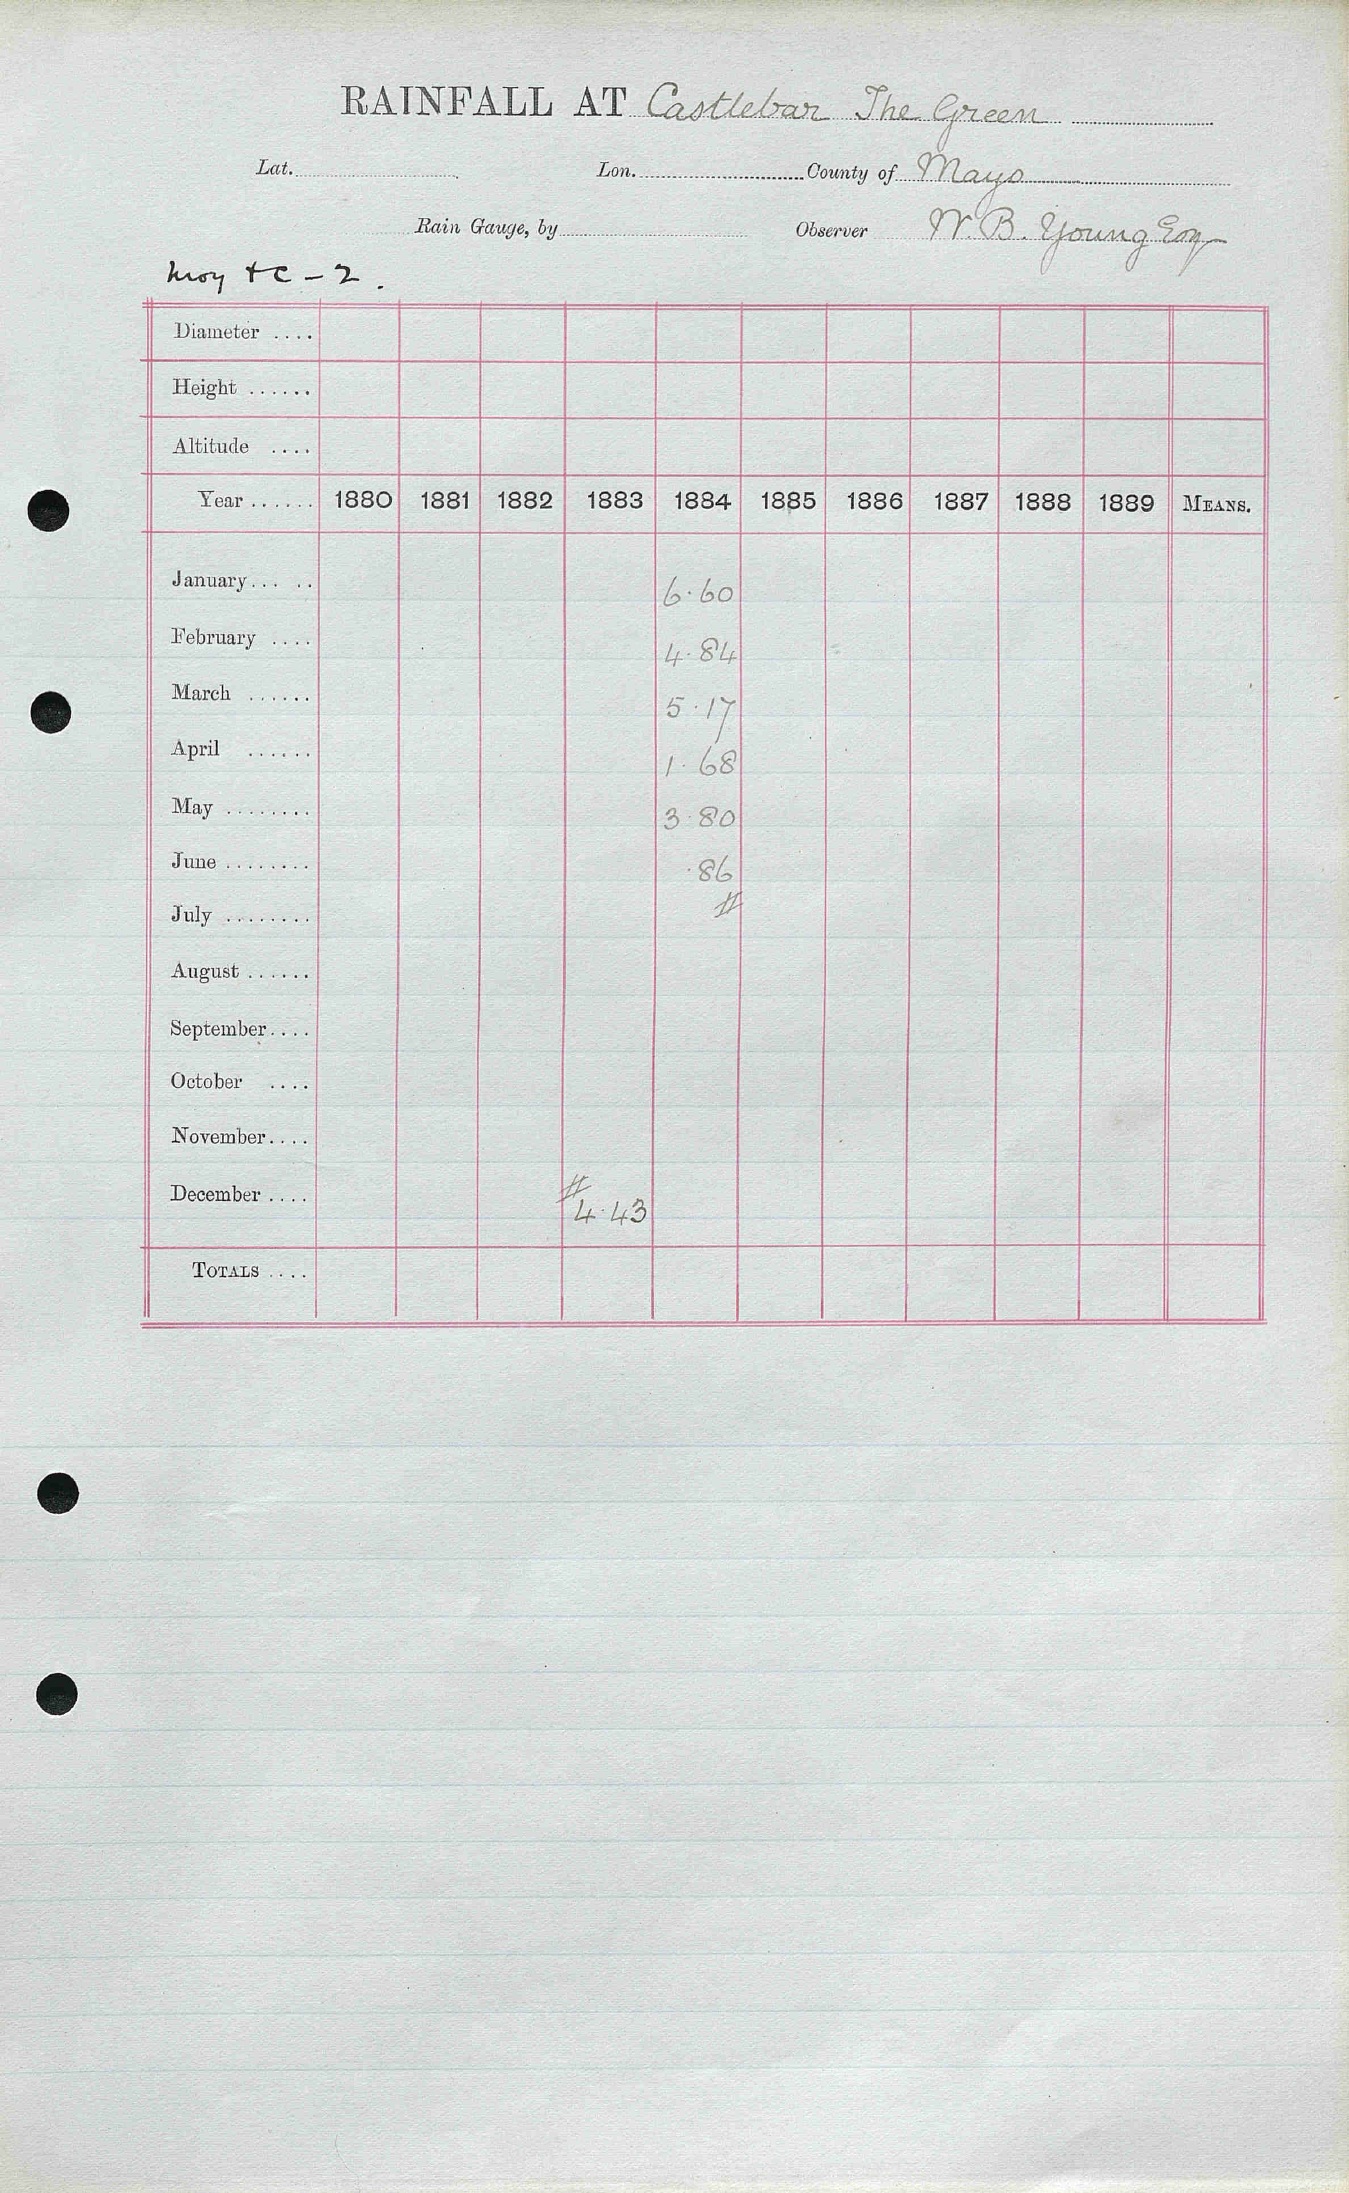 RAINFALL AT Castlebar The Green
Lat. Lon. County of Mayo
Rain Gauge, by Observer W. B. Young Esq
Moy + C - 2.
Diameter ....
Height ......
Altitude ....
Year ...... 1880 1881 1882 1883 1884 1885 1886 1887 1888 1889 MEANS.
January... .. 6.60
February .... 4.84
March ...... 5.17
April ...... 1.68
May ........ 3.80
June ........ .86
July ........ #
August ......
September....
October ....
November....
December .... # 4.43
TOTALS ....